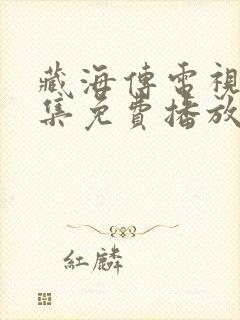 藏海傳電視
集免費播放
紅麟